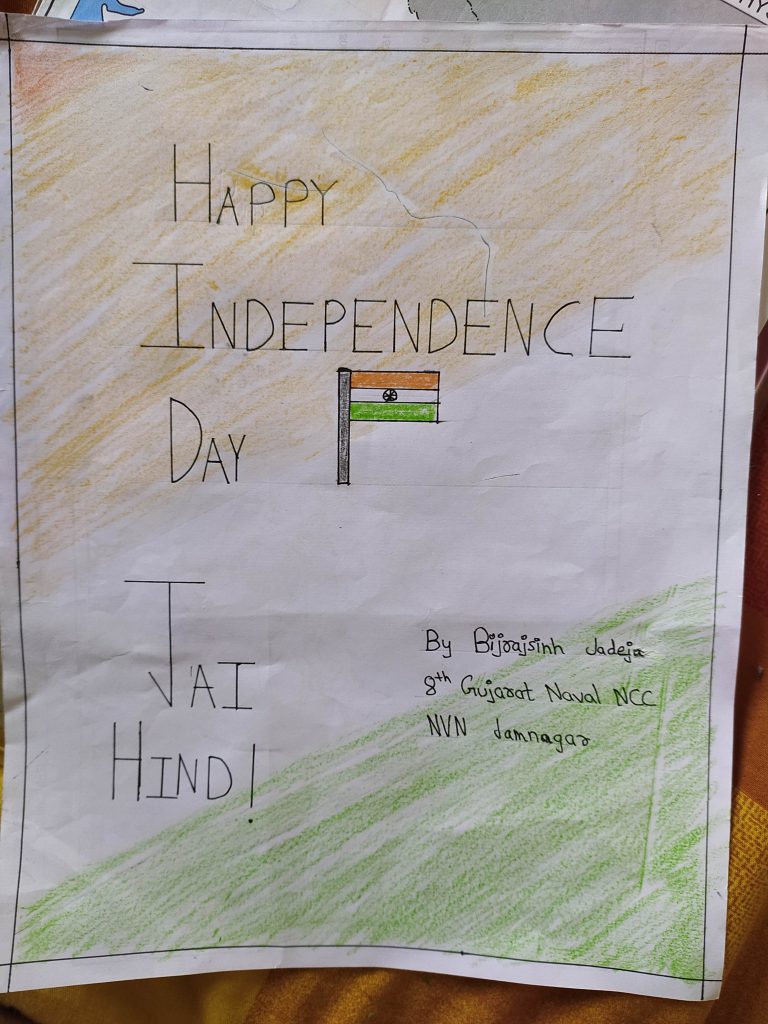 HAPPY
INDEPENDENCE
DAY
JAI
HIND!
By Bijrajsinh Jadeja
8th Gujarat Naval NCC
NVN Jamnagar